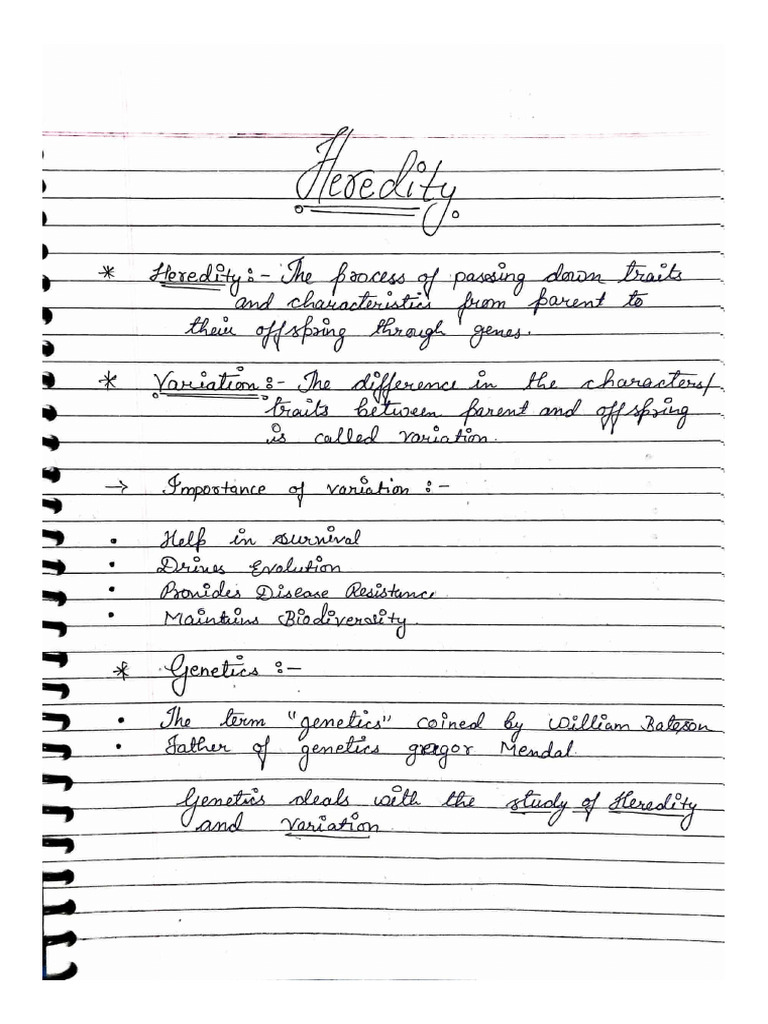 Heredity
* Heredity :- The process of passing down traits
and characteristics from parent to
their offspring through genes.
* Variation :- The difference in the characters/
traits between parent and offspring
is called variation.
→ Importance of variation :-
• Help in survival
• Drives Evolution
• Provides Disease Resistance
• Maintains Biodiversity
* Genetics :-
• The term "genetics" coined by William Bateson
• Father of genetics gregor Mendal.
Genetics deals with the study of Heredity
and variation